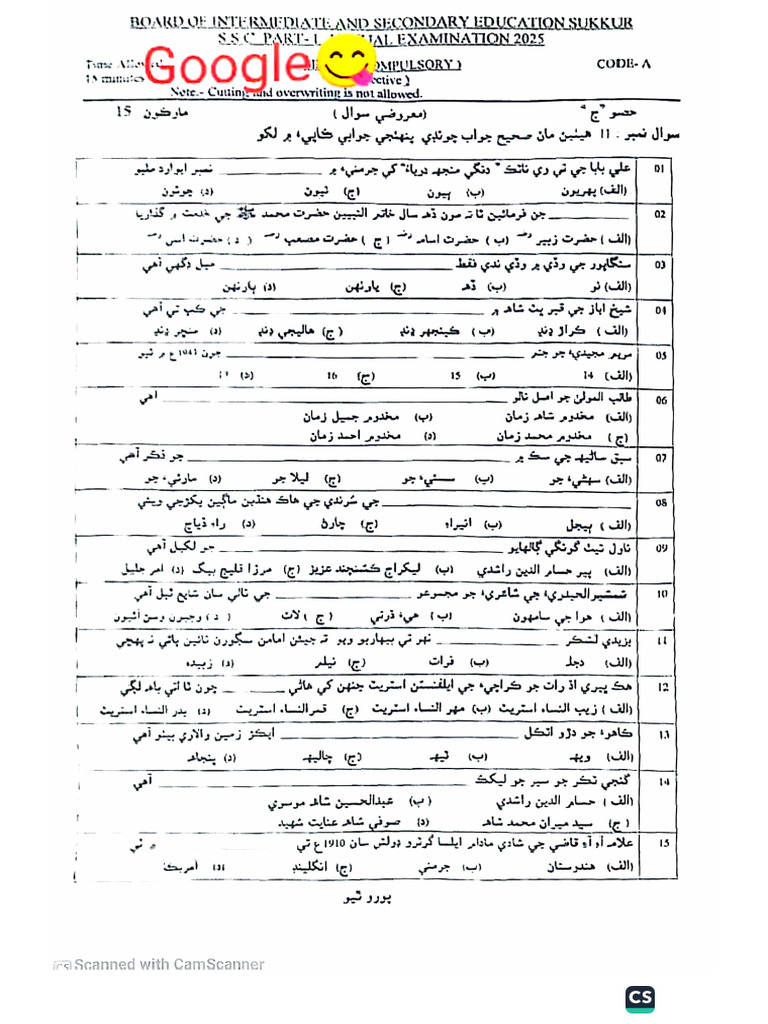 BOARD OF INTERMEDIATE AND SECONDARY EDUCATION SUKKUR
S.S.C. PART-I, EXAMINATION 2025
Time Allowed
COMPULSORY ) CODE- A
15 minutes
Google
Note.- Cutting and overwriting is not allowed.
حصو " ج " (معروضي سوال) مارڪون 15
سوال نمبر : 11 هيٺين مان صحيح جواب چونڊي پنهنجي جوابي ڪاپيءَ ۾ لکو
01 علي بابا جي ٽي وي ناٽڪ " دنگي منجهہ درياءَ" کي جرمنيءَ ۾ ________ نمبر ايوارڊ مليو
(الف) پهريون (ب) ٻيون (ج) ٽيون (د) چوٿون
02 ________ جن فرمائين ٿا تہ مون ڏهہ سال خاتم النبيين حضرت محمد ﷺ جي خدمت ۾ گذاريا
(الف) حضرت زبير رضہ (ب) حضرت اسامہ رضہ (ج) حضرت مصعب رضہ (د) حضرت انس رضہ
03 سنگاپور جي وڏي ۾ وڏي ندي فقط ________ ميل ڊگهي آهي
(الف) نو (ب) ڏهہ (ج) يارنهن (د) ٻارنهن
04 شيخ اياز جي قبر ڀٽ شاهہ ۾ ________ جي ڪپ تي آهي
(الف) ڪراڙ ڍنڍ (ب) ڪينجهر ڍنڍ (ج) هاليجي ڍنڍ (د) منڇر ڍنڍ
05 مريم مجيديءَ جو جنم ________ جون ع ۾ ٿيو
(الف) 14 (ب) 15 (ج) 16 (د)
06 طالب المولىٰ جو اصل نالو ________ آهي
(الف) مخدوم شاهہ زمان (ب) مخدوم جميل زمان
(ج) مخدوم محمد زمان (د) مخدوم احمد زمان
07 سبق ساڻيهہ جي سڪ ۾ ________ جو ذڪر آهي
(الف) سهڻيءَ جو (ب) سسئيءَ جو (ج) ليلا جو (د) مارئيءَ جو
08 ________ جي سُرندي جي هاڪ هنڌين ماڳين پکڙجي ويئي
(الف) ٻيجل (ب) انيراءِ (ج) چارڻ (د) راءِ ڏياچ
09 ناول تيٺ گونگي ڳالهايو ________ جو لکيل آهي
(الف) پير حسام الدين راشدي (ب) ليکراج ڪشنچند عزيز (ج) مرزا قليچ بيگ (د) امر جليل
10 شمشيرالحيدريءَ جي شاعريءَ جو مجموعو ________ جي نالي سان شايع ٿيل آهي
(الف) هوا جي سامهون (ب) هيءَ ڌرتي (ج) لاٽ (د) وڄيون وسڻ آئيون
11 يزيدي لشڪر ________ نهر تي بيهاريو ويو تہ جيئن امامن سڳورن تائين پاڻي نہ پهچي
(الف) دجلہ (ب) فرات (ج) نيلم (د) زبيدہ
12 هڪ ڀيري اڌ رات جو ڪراچيءَ جي ايلفنسٽن اسٽريٽ جنهن کي هاڻي ________ چون ٿا اتي باهہ لڳي
(الف) زيب النساء اسٽريٽ (ب) مهر النساء اسٽريٽ (ج) قمرالنساء اسٽريٽ (د) بدر النساء اسٽريٽ
13 ڪاهوءَ جو دڙو اٽڪل ________ ايڪڙ زمين والاري بيٺو آهي
(الف) ويهہ (ب) ٽيهہ (ج) چاليهہ (د) پنجاهہ
14 گنجي ٽڪر جو سير جو ليکڪ ________ آهي
(الف) حسام الدين راشدي (ب) عبدالحسين شاهہ موسوي
(ج) سيد ميران محمد شاهہ (د) صوفي شاهہ عنايت شهيد
15 علامہ آءِ آءِ قاضي جي شادي مادام ايلسا گرٽرو ڊولش سان 1910ع تي ________ ۾ ٿي
(الف) هندوستان (ب) جرمني (ج) انگلينڊ (د) آمريڪا
پورو ٿيو
CS Scanned with CamScanner
CS